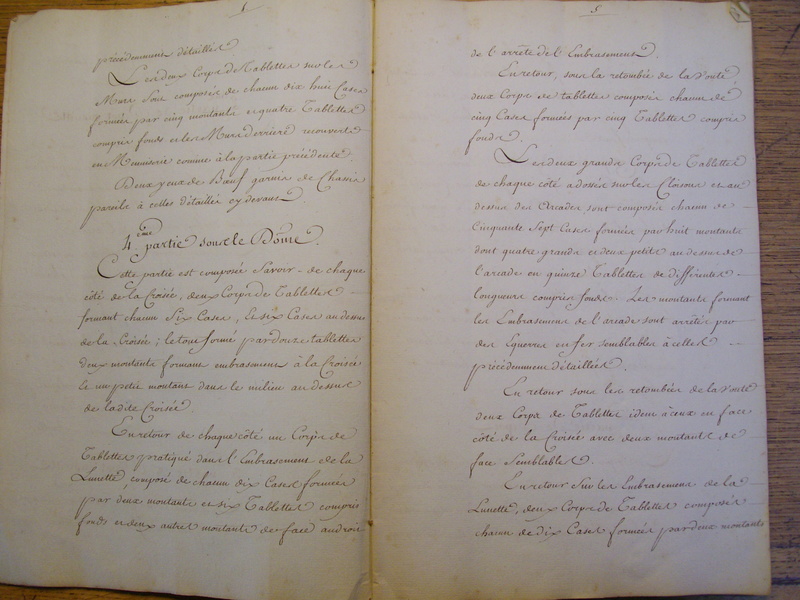 4
précédemment détaillés
Les deux Corps de Tablettes sur les
Murs sont composés de chacun dix huit Cases
formées par cinq montants et quatre Tablettes
compris fonds et les Murs derriere recouverts
en Menuiserie comme à la partie précédente.
Deux yeux de Bœuf garnis de Chassis
pareils à celles détaillés cy devant
4.ème partie sous le Dôme.
Cette partie est composée Savoir - de chaque
côté de la Croisée, deux Corps de Tablettes
formant chacun Six Cases, Et six Cases au dessus
de la Croisée ; le tout formé par douze tablettes
deux montants formant embrasement à la Croisée
et un petit montant dans le milieu au dessus
de la dite Croisée.
En retour de chaque côté un Corps de
Tablettes pratiqué dans l'Embrasement de la
Lunette, composé de chacun dix Cases formées
par deux montants et six Tablettes compris
fonds et deux autres montants de face au droit
5
de l'arrête de l'Embrasement.
En retour, sous la retombée de la Voute,
deux Corps de tablettes composés chacun de
cinq Cases formées par cinq Tablettes compris
fonds.
Les deux grands Corps de Tablettes
de chaque côté adossés sur les Cloisons et au
dessus des Arcades sont composés chacun de
Cinquante Sept Cases formées par huit montants
dont quatre grands et deux petits au dessus de
l'arcade en quinze Tablettes de différentes
longueurs compris fonds. Les montants formant
les Embrasements de l'arcade sont arrêtés par
des Equerres en fer semblables à celles
précédemment détaillées.
En retour sous les retombées de la Voute
deux Corps de Tablettes idem à ceux en face
côté de la Croisée avec deux montants de
face Semblables.
En retour Sur les Embrasements de la
Lunette, deux Corps de Tablettes composés
chacun de dix Cases formées par deux montants